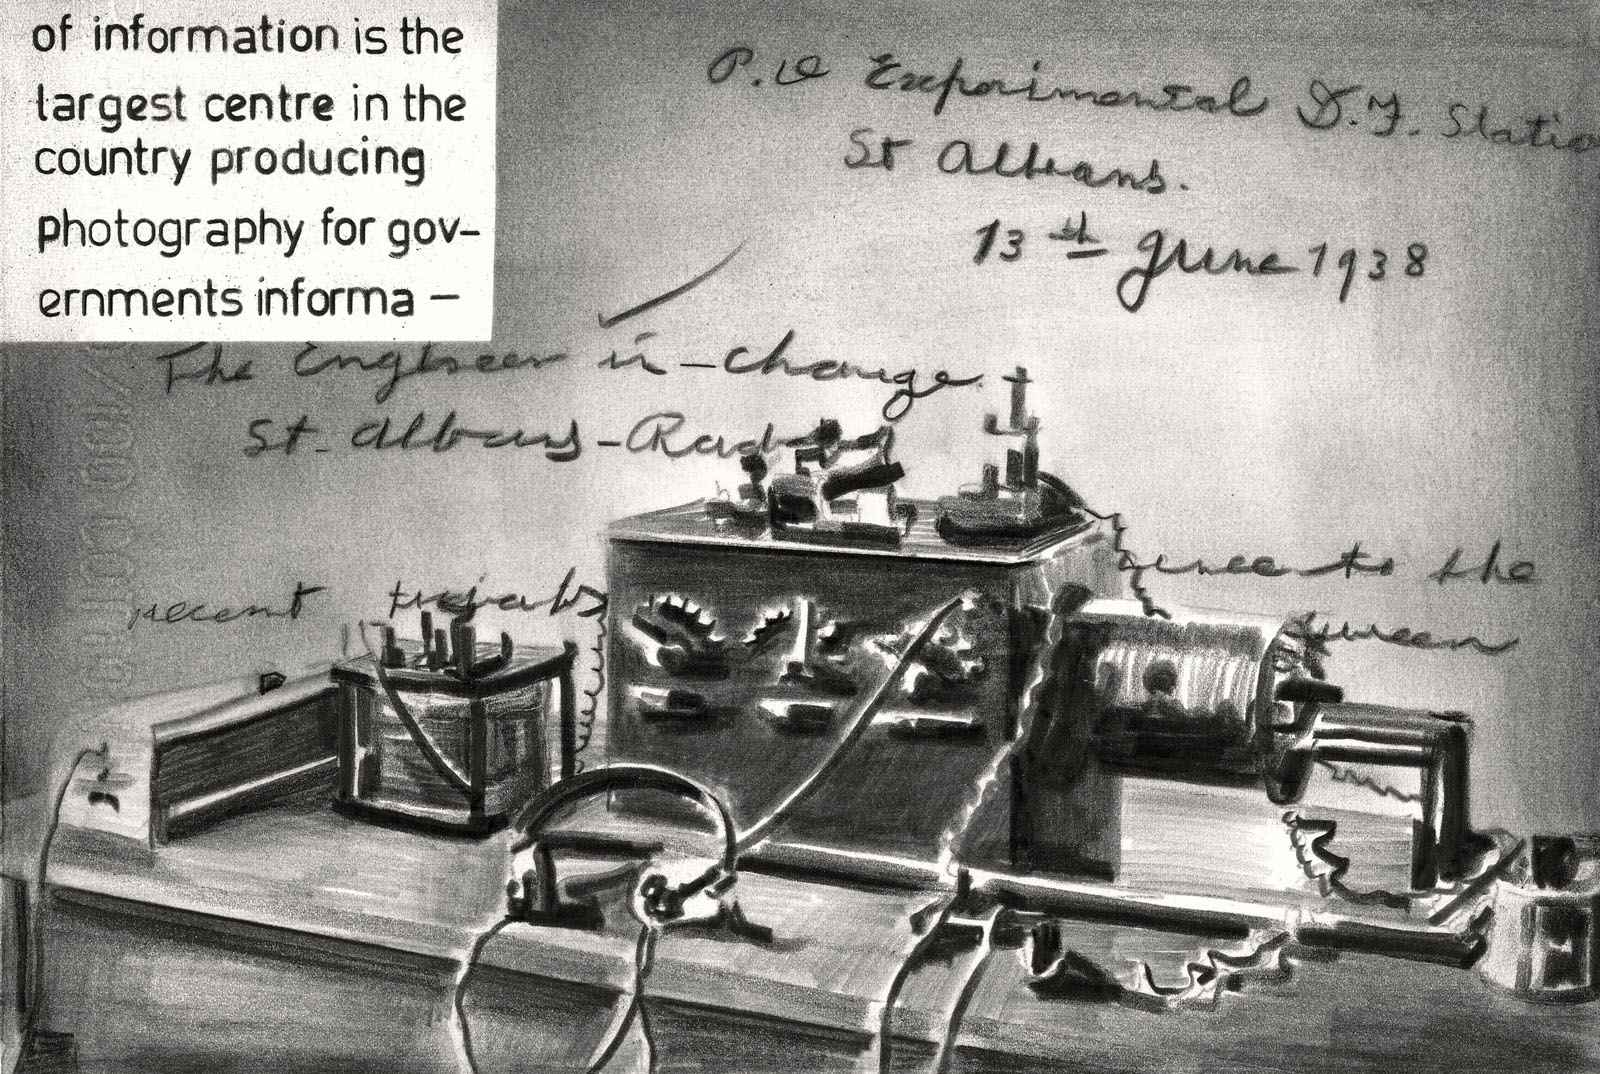 of information is the
largest centre in the
country producing
photography for gov–
ernments informa –
P.O Experimental D.F. Statio
St Albans.
13th June 1938
The Engineer in-charge
St. Albans-Rad
recent trials
to the